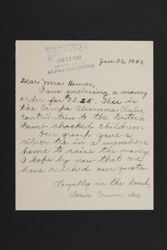 Jan. 26, 1942
Dear Mrs. Heuver,
I am enclosing a money
order for $2.25. This is
the Tampa Alumnae Club's
contribution to the British
bomb-shocked children.
Our group gave a
silver tea in a member's
home to raise the money.
I hope by now that we
have reached our quota.
Loyally in the bond,